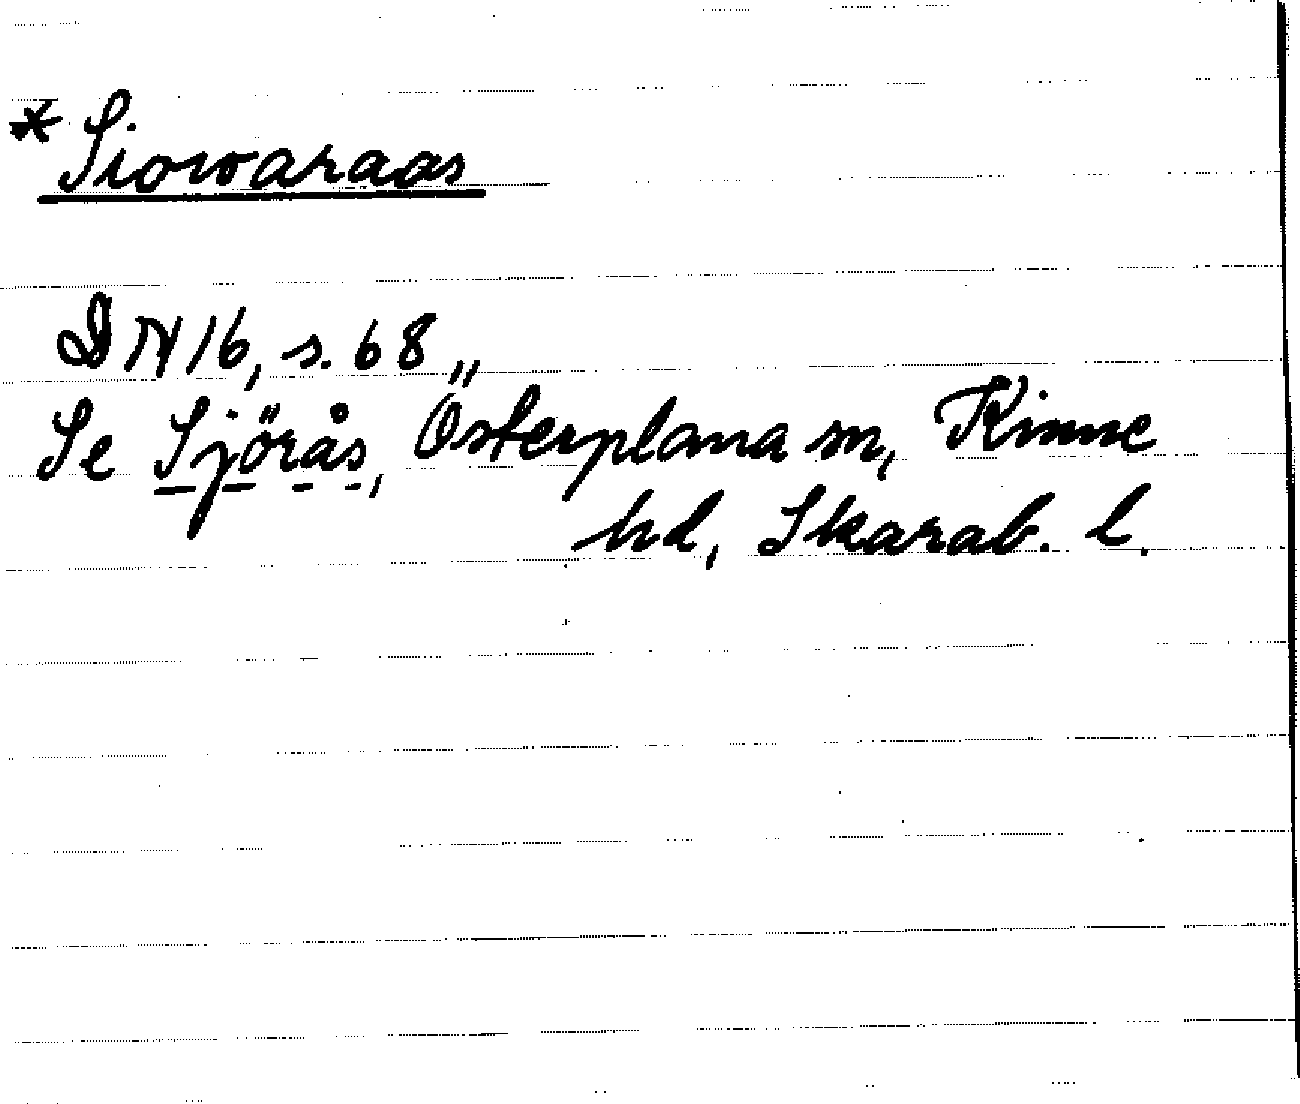 *Siowaraas
DN 16, s. 68
Se Sjörås, Österplana sn, Kinne
hd, Skarab. l.